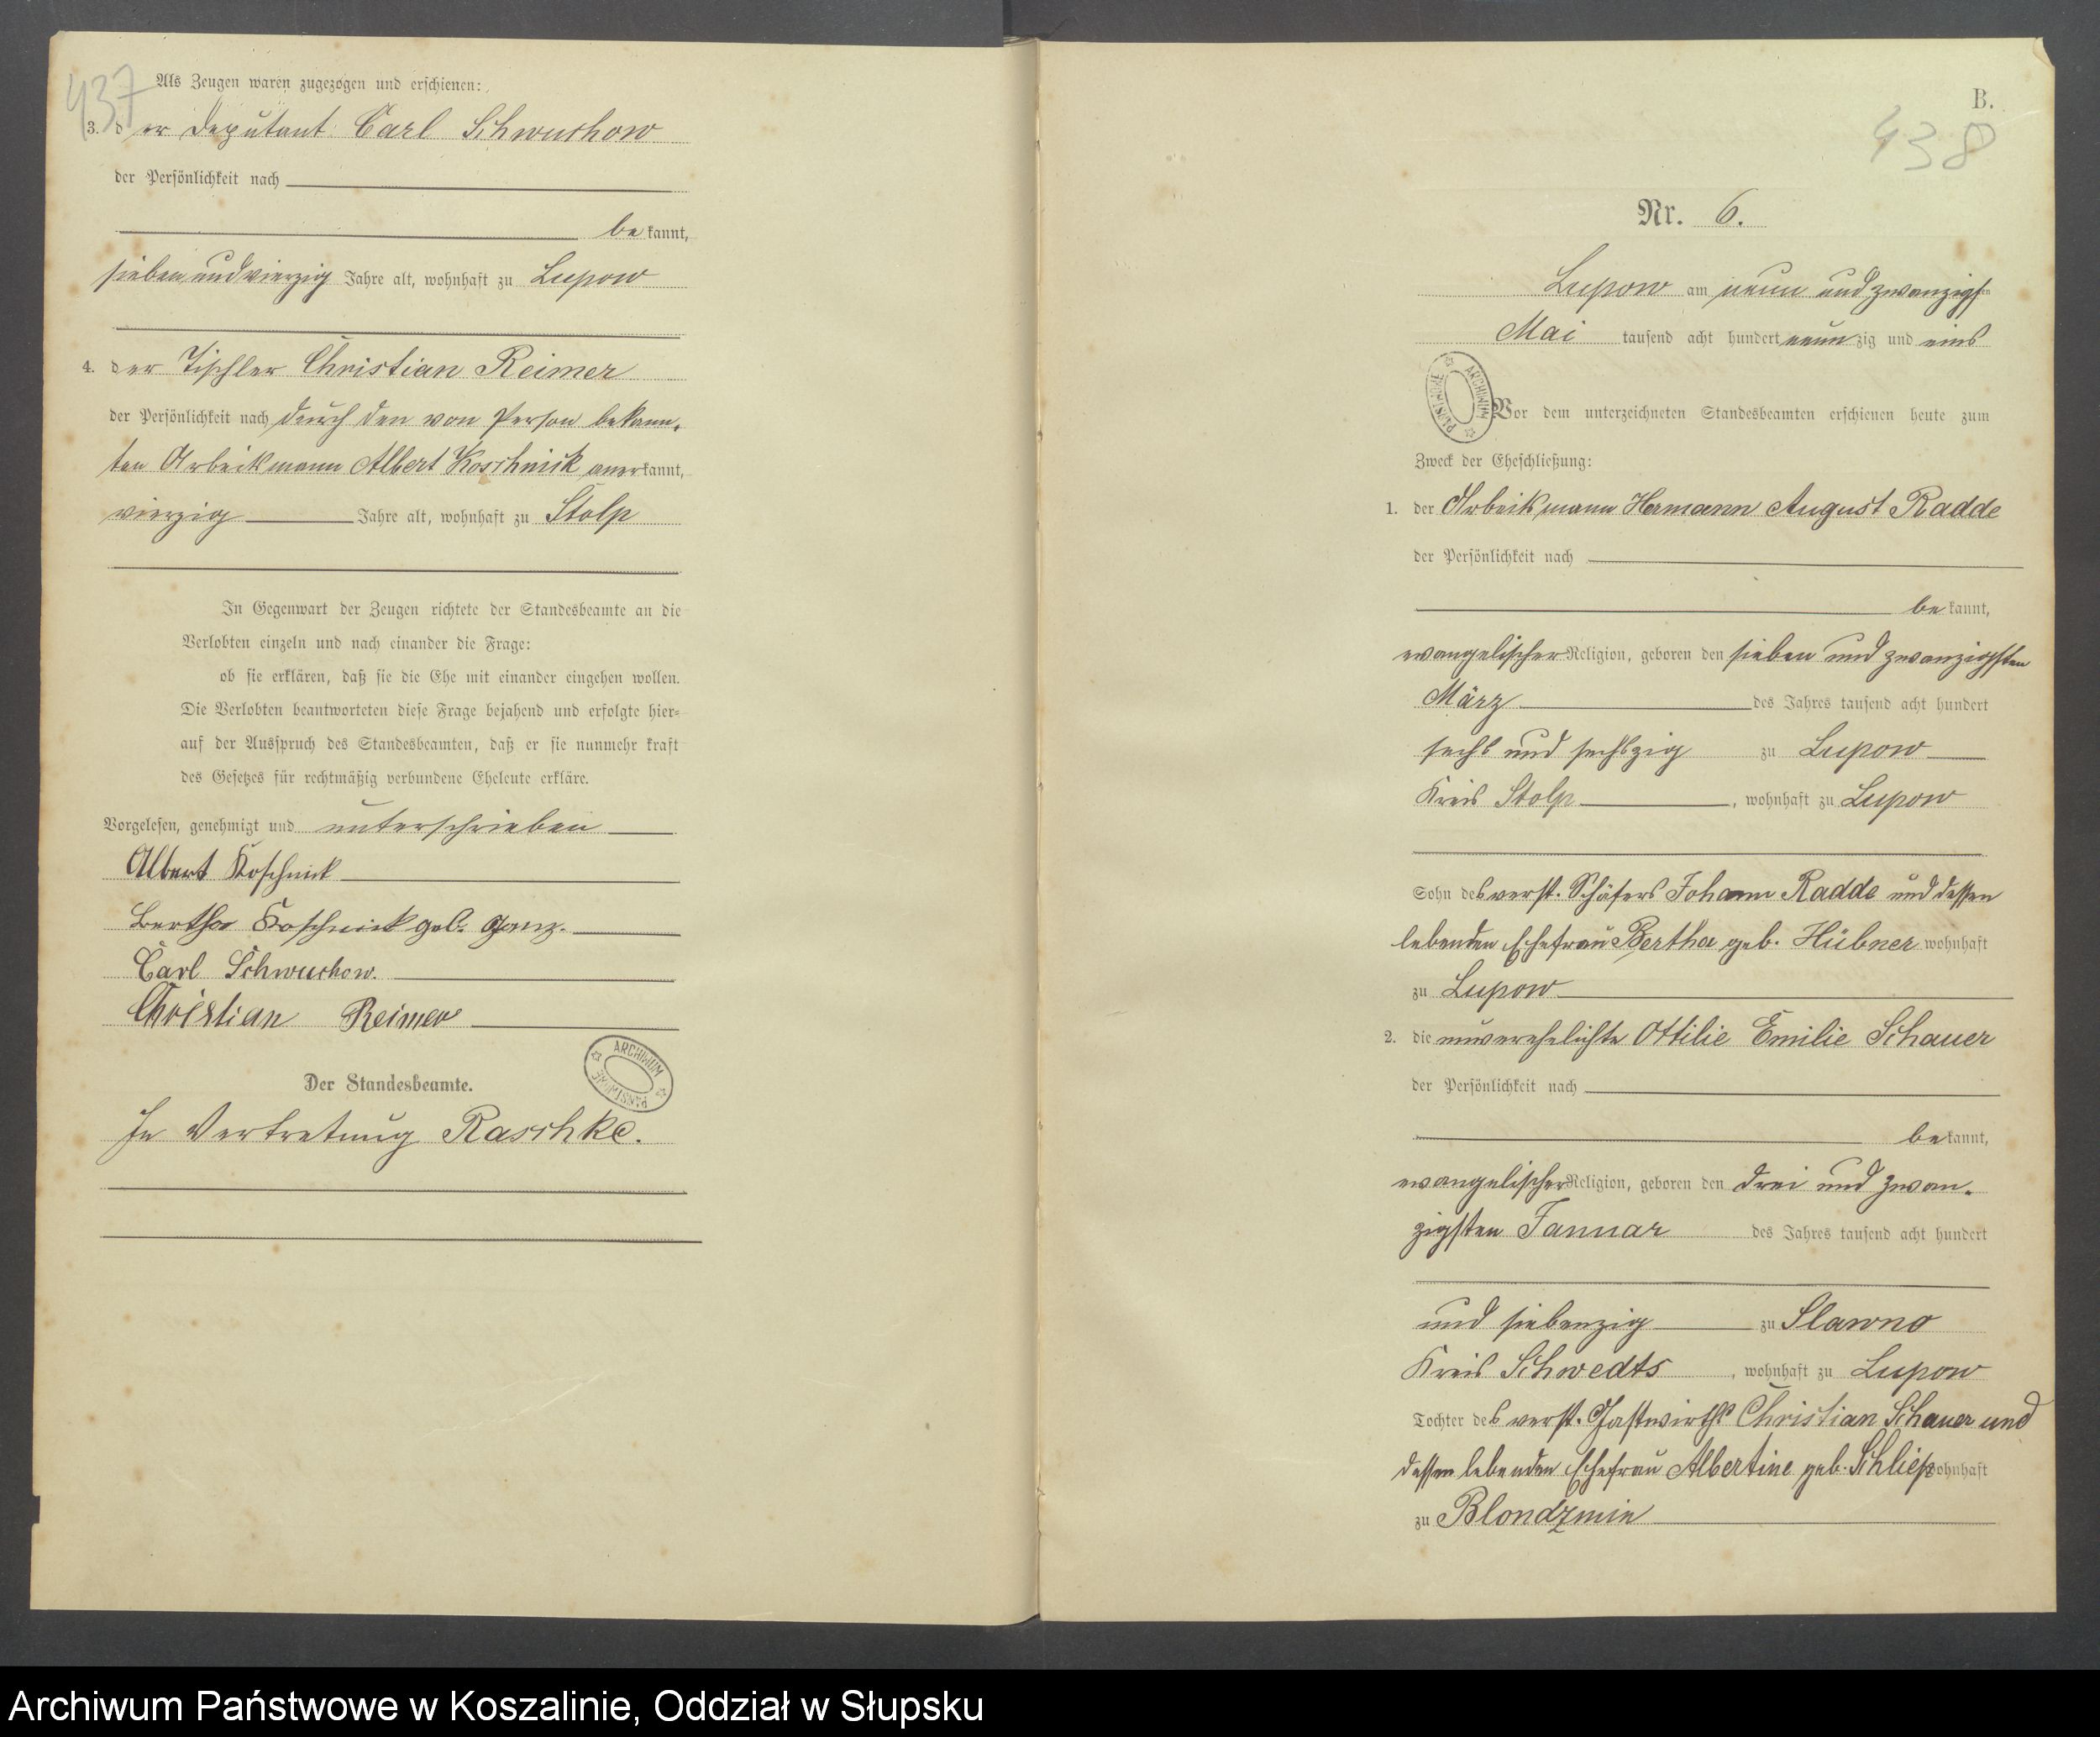 437
Als Zeugen waren zugezogen und erschienen:
3. der Deputant Carl Schwuchow
der Persönlichkeit nach
bekannt,
siebenundvierzig Jahre alt, wohnhaft zu Lupow
4. der Tischler Christian Reimer
der Persönlichkeit nach durch den von Person bekann-
ten Arbeitsmann Albert Koschnick anerkannt,
vierzig Jahre alt, wohnhaft zu Stolp
In Gegenwart der Zeugen richtete der Standesbeamte an die
Verlobten einzeln und nach einander die Frage:
ob sie erklären, daß sie die Ehe mit einander eingehen wollen.
Die Verlobten beantworteten diese Frage bejahend und erfolgte hier-
auf der Ausspruch des Standesbeamten, daß er sie nunmehr kraft
des Gesetzes für rechtmäßig verbundene Eheleute erkläre.
Vorgelesen, genehmigt und unterschrieben
Albert Koschnick
Bertha Koschnick geb.
Carl Schwuchow.
Christian Reimer
ARCHIWUM PAŃSTWOWE
Der Standesbeamte.
In Vertretung Raschke.
B.
438
Nr. 6.
Lupow am neun und zwanzigsten
Mai tausend acht hundert neunzig und eins
ARCHIWUM PAŃSTWOWE
Vor dem unterzeichneten Standesbeamten erschienen heute zum
Zweck der Eheschließung:
1. der Arbeitsmann Hermann August Radde
der Persönlichkeit nach
bekannt,
evangelischer Religion, geboren den sieben und zwanzigsten
März des Jahres tausend acht hundert
sechs und sechszig zu Lupow
Kreis Stolp, wohnhaft zu Lupow
Sohn des verst. Schäfers Johann Radde und dessen
lebenden Ehefrau Bertha geb. Hübner wohnhaft
zu Lupow
2. die unverehelichte Ottilie Emilie Schauer
der Persönlichkeit nach
bekannt,
evangelischer Religion, geboren den drei und zwan-
zigsten Januar des Jahres tausend acht hundert
und siebenzig zu Slawno
Kreis Schwedts, wohnhaft zu Lupow
Tochter des verst. Gastwirths Christian Schauer und
dessen lebenden Ehefrau Albertine geb. Schliep wohnhaft
zu Blondzmin
Archiwum Państwowe w Koszalinie, Oddział w Słupsku